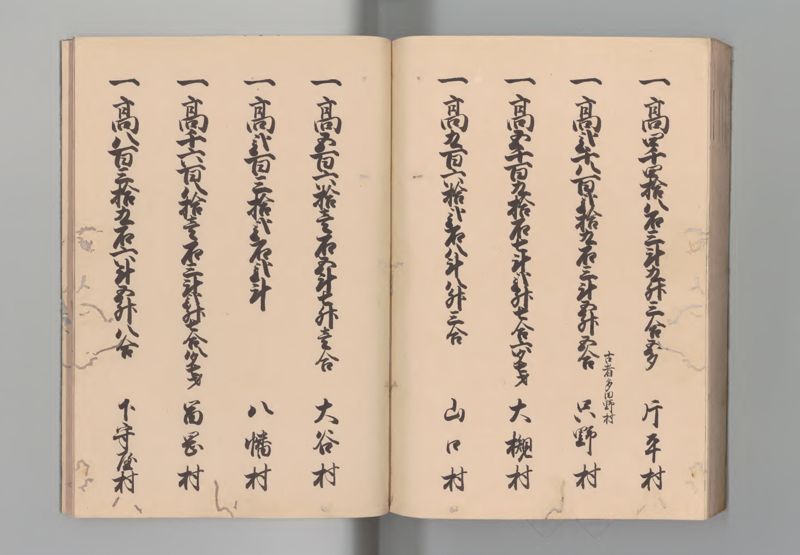 一 高四千四拾八石三斗九升三合五夕 片平村
一 高弐千八百弐拾五石三斗五升五合 只野村
古者多田野村
一 高五千百九拾石七斗弐升七合六夕壱才 大槻村
一 高九百六拾弐石八斗八升三合 山口村
一 高五百六拾壱石五斗七升壱合 大谷村
一 高弐百三拾弐石弐斗 八幡村
一 高千六百八拾壱石三斗弐升七合八夕壱才 富岡村
一 高八百三拾九石六斗五升八合 下守屋村